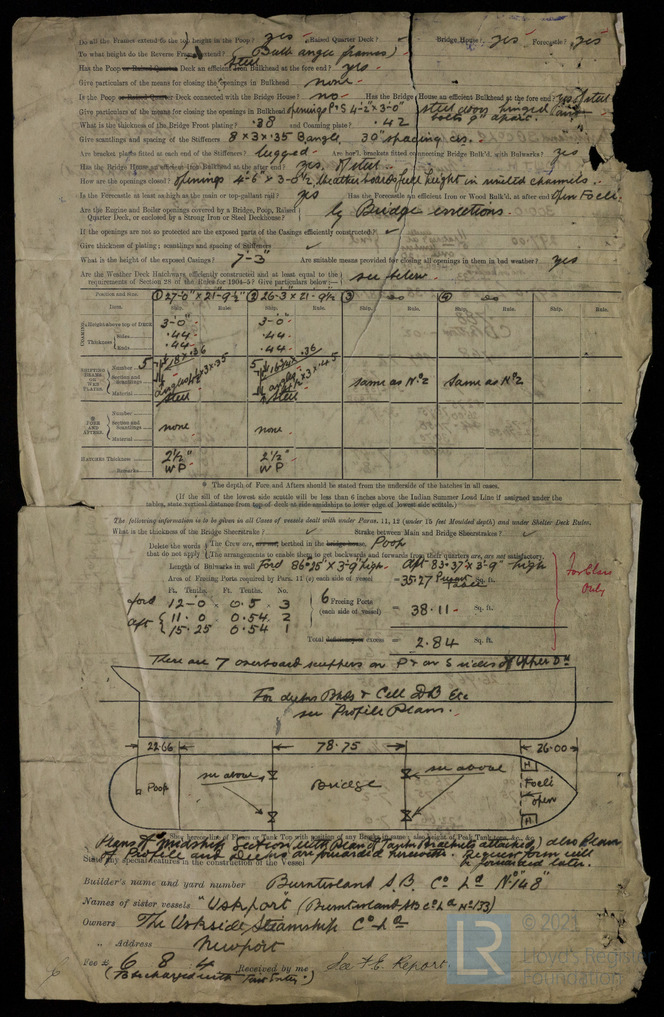 Do all the Frames extend to the top height in the Poop? yes Raised Quarter Deck? Bridge House? yes Forecastle? yes
To what height do the Reverse Frames extend? (Bulb angle frames)
Has the Poop or Raised Quarter Deck an efficient Steel Bulkhead at the fore end? yes
Give particulars of the means for closing the openings in Bulkhead none
Is the Poop or Raised Quarter Deck connected with the Bridge House? no Has the Bridge House an efficient Bulkhead at the fore end? yes of steel
Give particulars of the means for closing the openings in Bulkhead openings P & S 4-2" x 3-0" steel doors hinged and bolts 9" apart.
What is the thickness of the Bridge Front plating? .38 and Coaming plate? .42
Give scantlings and spacing of the Stiffeners 8 x 3 x .35 B angles, 30" spacing crs.
Are bracket plates fitted at each end of the Stiffeners? lugged fitted connecting Bridge Bulk'd. with Bulwarks? yes
Has the Bridge House an efficient Bulkhead at the after end? yes, of steel
How are the openings closed? openings 4'-6" x 3-0" weatherboards full height in riveted channels.
Is the Forecastle at least as high as the main or top-gallant rail? yes Has the Forecastle an efficient Iron or Wood Bulk'd. at after end? Open Focle.
Are the Engine and Boiler openings covered by a Bridge, Poop, Raised Quarter Deck, or enclosed by a Strong Iron or Steel Deckhouse? by Bridge erections.
If the openings are not so protected are the exposed parts of the Casings efficiently constructed?
Give thickness of plating; scantlings and spacing of Stiffeners
What is the height of the exposed Casings? 7-3" Are suitable means provided for closing all openings in them in bad weather? yes
Are the Weather Deck Hatchways efficiently constructed and at least equal to the requirements of Section 28 of the Rules for 1904-5? Give particulars below:— see below.
Position and Size. ① 27-0" x 21-9½" ② 26-3 x 21-9½ ③ do ④ do
Item. Ship. Rule. Ship. Rule. Ship. Rule. Ship. Rule.
COAMING Height above top of DECK 3-0" 3-0"
Thickness Sides .44 .44
Ends .44 .44
SHIFTING BEAMS OR WEB PLATES. Number 5 5
Section and Scantlings same as No 2 same as No 2
Material Steel Steel
* FORE AND AFTERS. Number
Section and Scantlings none none
Material
HATCHES Thickness 2½" 2½"
Remarks WP WP
* The depth of Fore and Afters should be stated from the underside of the hatches in all cases.
(If the sill of the lowest side scuttle will be less than 6 inches above the Indian Summer Load Line if assigned under the
tables, state vertical distance from top of deck at side amidships to lower edge of lowest side scuttle.)
The following information is to be given in all Cases of Vessels dealt with under Paras. 11, 12 (under 15 feet Moulded depth) and under Shelter Deck Rules.
What is the thickness of the Bridge Sheerstrake? Strake between Main and Bridge Sheerstrakes?
Delete the words that do not apply The Crew are, are not, berthed in the bridge house. Poop
The arrangements to enable them to get backwards and forwards from their quarters are, are not satisfactory.
Length of Bulwarks in well Ford 86.25 x 3'-9" high. Aft 83.37 x 3'-9" high
Area of Freeing Ports required by Para. 11 (c) each side of vessel = 35.27 Sq. ft.
For Class Only
Ft. Tenths. Ft. Tenths. No.
ford 12-0 x 0.5 x 3
aft 11.0 x 0.54 x 2
15.25 0.54 1
6 Freeing Ports (each side of vessel) = 38.11 Sq. ft.
Total deficiency or excess = 2.84 Sq. ft.
There are 7 overboard scuppers on P & on S sides of Upper Dk
For decks Bhds & Cell DB Etc
see Profile Plans.
22.66 78.75 26.00
Poop see above Bridge see above Focle open
H
H
Plans of Midship Section with Plan of Tank Brackets attached) also Plans
of Profile and Decks are forwarded herewith. Request form will be forwarded later.
State any special features in the construction of the Vessel
Builder's name and yard number Burntisland S.B. Co Ld No "148"
Names of sister vessels "Uskport" (Burntisland SB Co Ld No 133)
Owners The Uskside Steamship Co Ld
" Address Newport
Fee £ 6 8 4 Received by me See F.E. Report.
(To be charged with First Entry.)
© 2021
LR
Lloyd's Register
Foundation